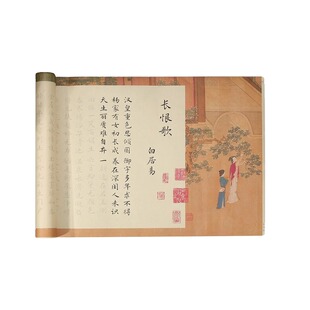 长恨歌
白居易
汉皇重色思倾国 御宇多年求不得
杨家有女初长成 养在深闺人未识
天生丽质难自弃 一